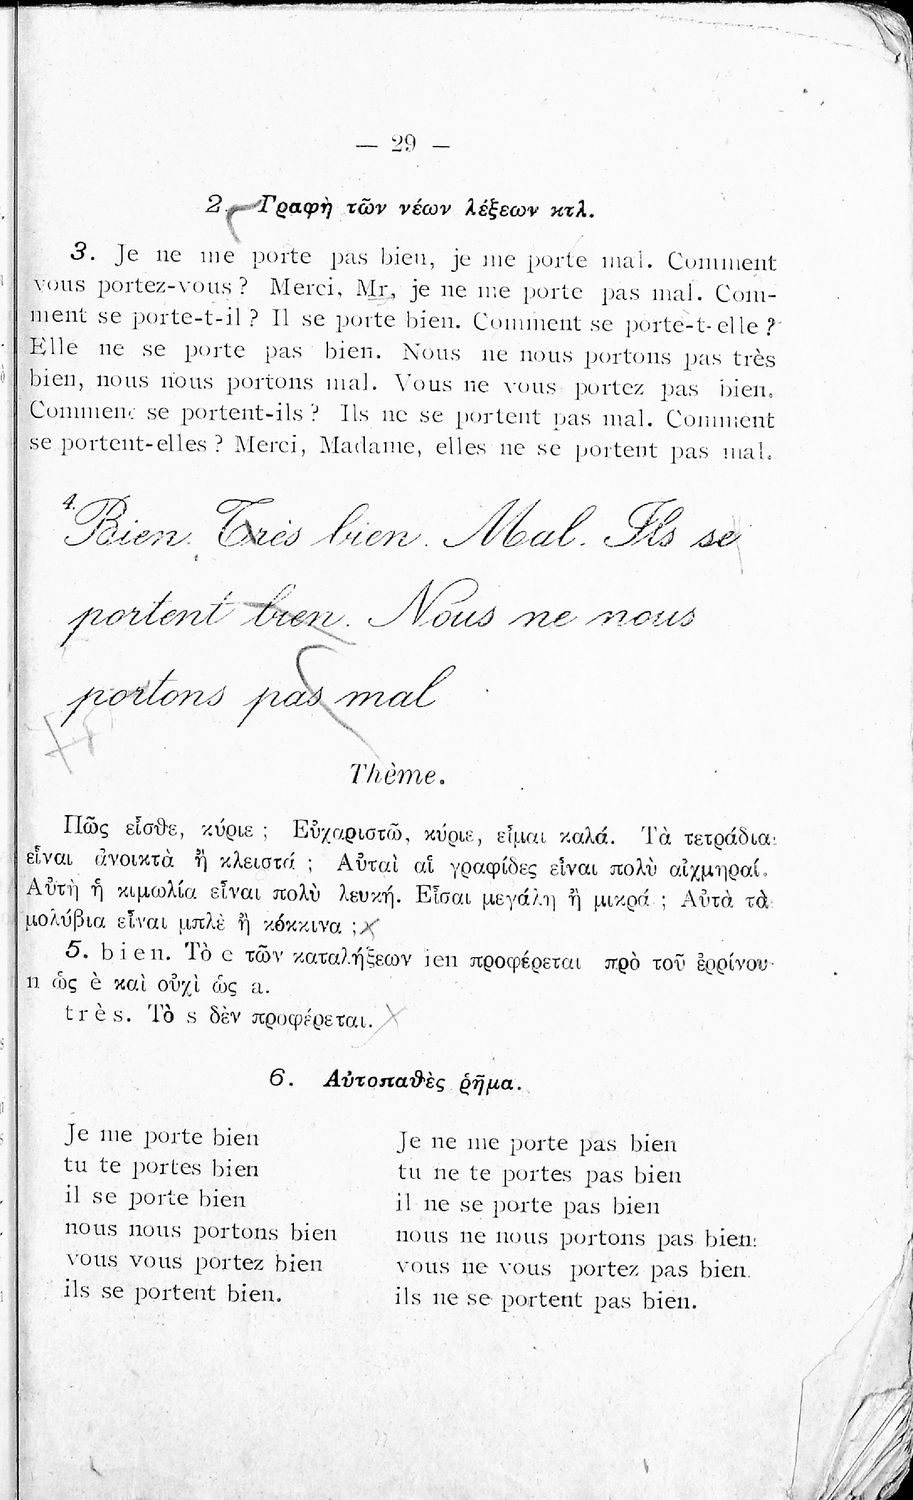 — 29 —
2. Γραφὴ τῶν νέων λέξεων κτλ.
3. Je ne me porte pas bien, je me porte mal. Comment
vous portez-vous ? Merci, Mr, je ne me porte pas mal. Com-
ment se porte-t-il ? Il se porte bien. Comment se porte-t-elle ?
Elle ne se porte pas bien. Nous ne nous portons pas très
bien, nous nous portons mal. Vous ne vous portez pas bien.
Comment se portent-ils ? Ils ne se portent pas mal. Comment
se portent-elles ? Merci, Madame, elles ne se portent pas mal.
4. Bien. Très bien. Mal. Ils se
portent bien. Nous ne nous
portons pas mal
Thème.
Πῶς εἶσθε, κύριε ; Εὐχαριστῶ, κύριε, εἶμαι καλά. Τὰ τετράδια
εἶναι ἀνοικτὰ ἢ κλειστά ; Αὗταὶ αἱ γραφίδες εἶναι πολὺ αἰχμηραί.
Αὕτη ἡ κιμωλία εἶναι πολὺ λευκή. Εἶσαι μεγάλη ἢ μικρά ; Αὐτὰ τὰ
μολύβια εἶναι μπλὲ ἢ κόκκινα ;
5. bien. Τὸ e τῶν καταλήξεων ien προφέρεται πρὸ τοῦ ἐρρίνου
n ὡς è καὶ οὐχὶ ὡς a.
très. Τὸ s δὲν προφέρεται.
6. Αὐτοπαθὲς ῥῆμα.
Je me porte bien
tu te portes bien
il se porte bien
nous nous portons bien
vous vous portez bien
ils se portent bien.
Je ne me porte pas bien
tu ne te portes pas bien
il ne se porte pas bien
nous ne nous portons pas bien
vous ne vous portez pas bien.
ils ne se portent pas bien.